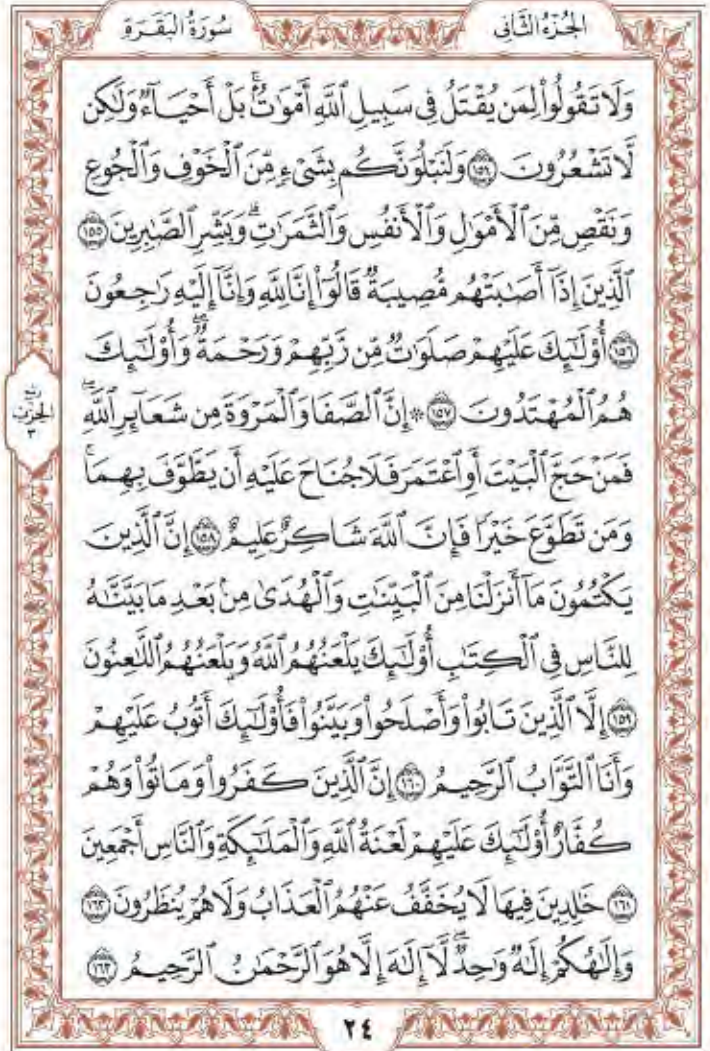 سُورَةُ البَقَرَةِ
الجُزْءُ الثَّانِى
وَلَا تَقُولُواْ لِمَن يُقْتَلُ فِى سَبِيلِ ٱللَّهِ أَمْوَٰتٌۢ بَلْ أَحْيَآءٌ وَلَٰكِن
لَّا تَشْعُرُونَ ١٥٤ وَلَنَبْلُوَنَّكُم بِشَىْءٍ مِّنَ ٱلْخَوْفِ وَٱلْجُوعِ
وَنَقْصٍ مِّنَ ٱلْأَمْوَٰلِ وَٱلْأَنفُسِ وَٱلثَّمَرَٰتِ ۗ وَبَشِّرِ ٱلصَّٰبِرِينَ ١٥٥
ٱلَّذِينَ إِذَآ أَصَٰبَتْهُم مُّصِيبَةٌ قَالُوٓاْ إِنَّا لِلَّهِ وَإِنَّآ إِلَيْهِ رَٰجِعُونَ
١٥٦ أُوْلَٰٓئِكَ عَلَيْهِمْ صَلَوَٰتٌ مِّن رَّبِّهِمْ وَرَحْمَةٌ ۖ وَأُوْلَٰٓئِكَ
هُمُ ٱلْمُهْتَدُونَ ١٥٧ ۞ إِنَّ ٱلصَّفَا وَٱلْمَرْوَةَ مِن شَعَآئِرِ ٱللَّهِ ۖ
فَمَنْ حَجَّ ٱلْبَيْتَ أَوِ ٱعْتَمَرَ فَلَا جُنَاحَ عَلَيْهِ أَن يَطَّوَّفَ بِهِمَا ۚ
وَمَن تَطَوَّعَ خَيْرًا فَإِنَّ ٱللَّهَ شَاكِرٌ عَلِيمٌ ١٥٨ إِنَّ ٱلَّذِينَ
يَكْتُمُونَ مَآ أَنزَلْنَا مِنَ ٱلْبَيِّنَٰتِ وَٱلْهُدَىٰ مِنۢ بَعْدِ مَا بَيَّنَّٰهُ
لِلنَّاسِ فِى ٱلْكِتَٰبِ أُوْلَٰٓئِكَ يَلْعَنُهُمُ ٱللَّهُ وَيَلْعَنُهُمُ ٱللَّٰعِنُونَ
١٥٩ إِلَّا ٱلَّذِينَ تَابُواْ وَأَصْلَحُواْ وَبَيَّنُواْ فَأُوْلَٰٓئِكَ أَتُوبُ عَلَيْهِمْ
وَأَنَا ٱلتَّوَّابُ ٱلرَّحِيمُ ١٦٠ إِنَّ ٱلَّذِينَ كَفَرُواْ وَمَاتُواْ وَهُمْ
كُفَّارٌ أُوْلَٰٓئِكَ عَلَيْهِمْ لَعْنَةُ ٱللَّهِ وَٱلْمَلَٰٓئِكَةِ وَٱلنَّاسِ أَجْمَعِينَ
١٦١ خَٰلِدِينَ فِيهَا لَا يُخَفَّفُ عَنْهُمُ ٱلْعَذَابُ وَلَا هُمْ يُنظَرُونَ ١٦٢
وَإِلَٰهُكُمْ إِلَٰهٌ وَٰحِدٌ ۖ لَّآ إِلَٰهَ إِلَّا هُوَ ٱلرَّحْمَٰنُ ٱلرَّحِيمُ ١٦٣
ربع
الحزب
٣
٢٤